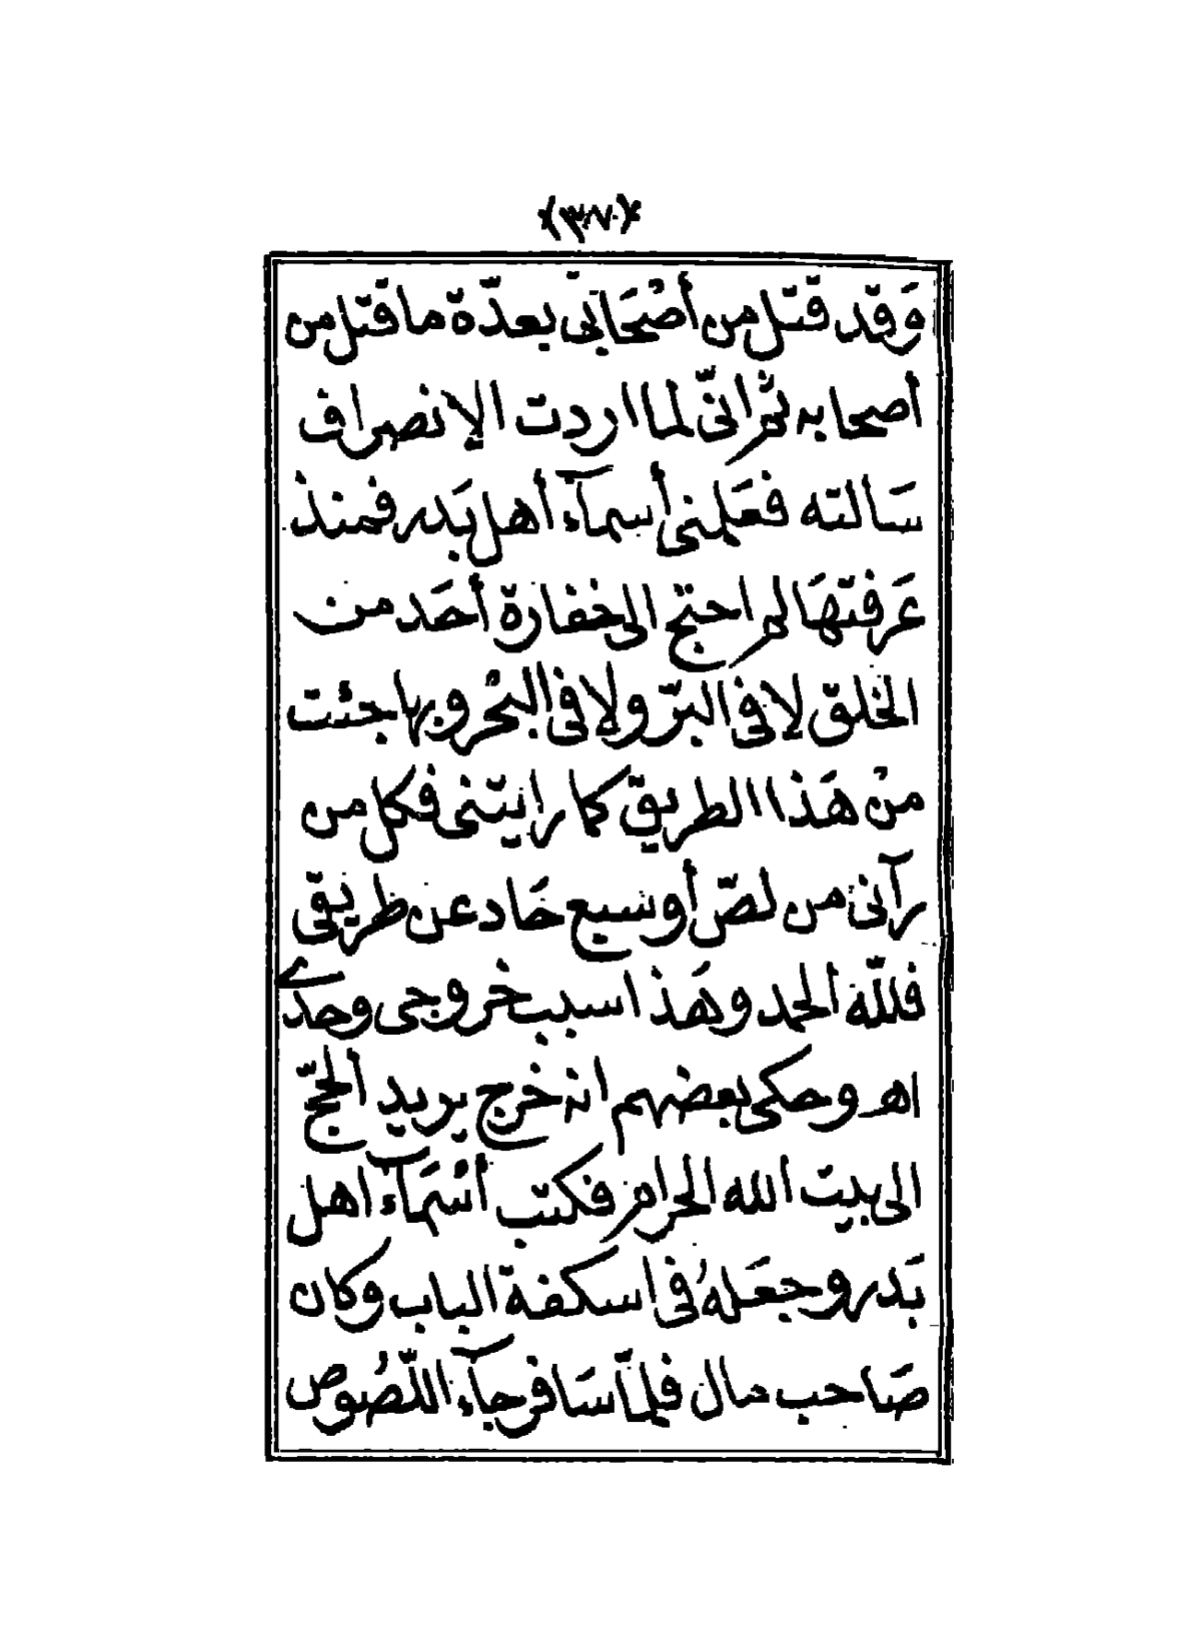 (٣٨٠)
وَقد قتل من أصْحَابى بعدّة ما قتل من
أصحابه ثم انّى لما اردت الإنصراف
سَالته فعَلمنى أسمآء أهل بَدر فمنذ
عَرفتهَا لم احتج الى خفارة أحَد من
الخلق لا فى البرّ ولا فى البحْر وبها جئت
منْ هَذا الطريق كما رايتنى فكل من
رآنى من لصّ أو سبع حَاد عن طريقى
فللّه الحمد وهَذا سبب خروجى وحدى
اه وحكى بعضهم انه خرج يريد الحجّ
الى بيت الله الحرام فكتب أسْمَآء اهل
بَدر وجعَلهُ فى اسكفة الباب وكان
صَاحب مال فلمّا سَافر جآء اللّصُوص